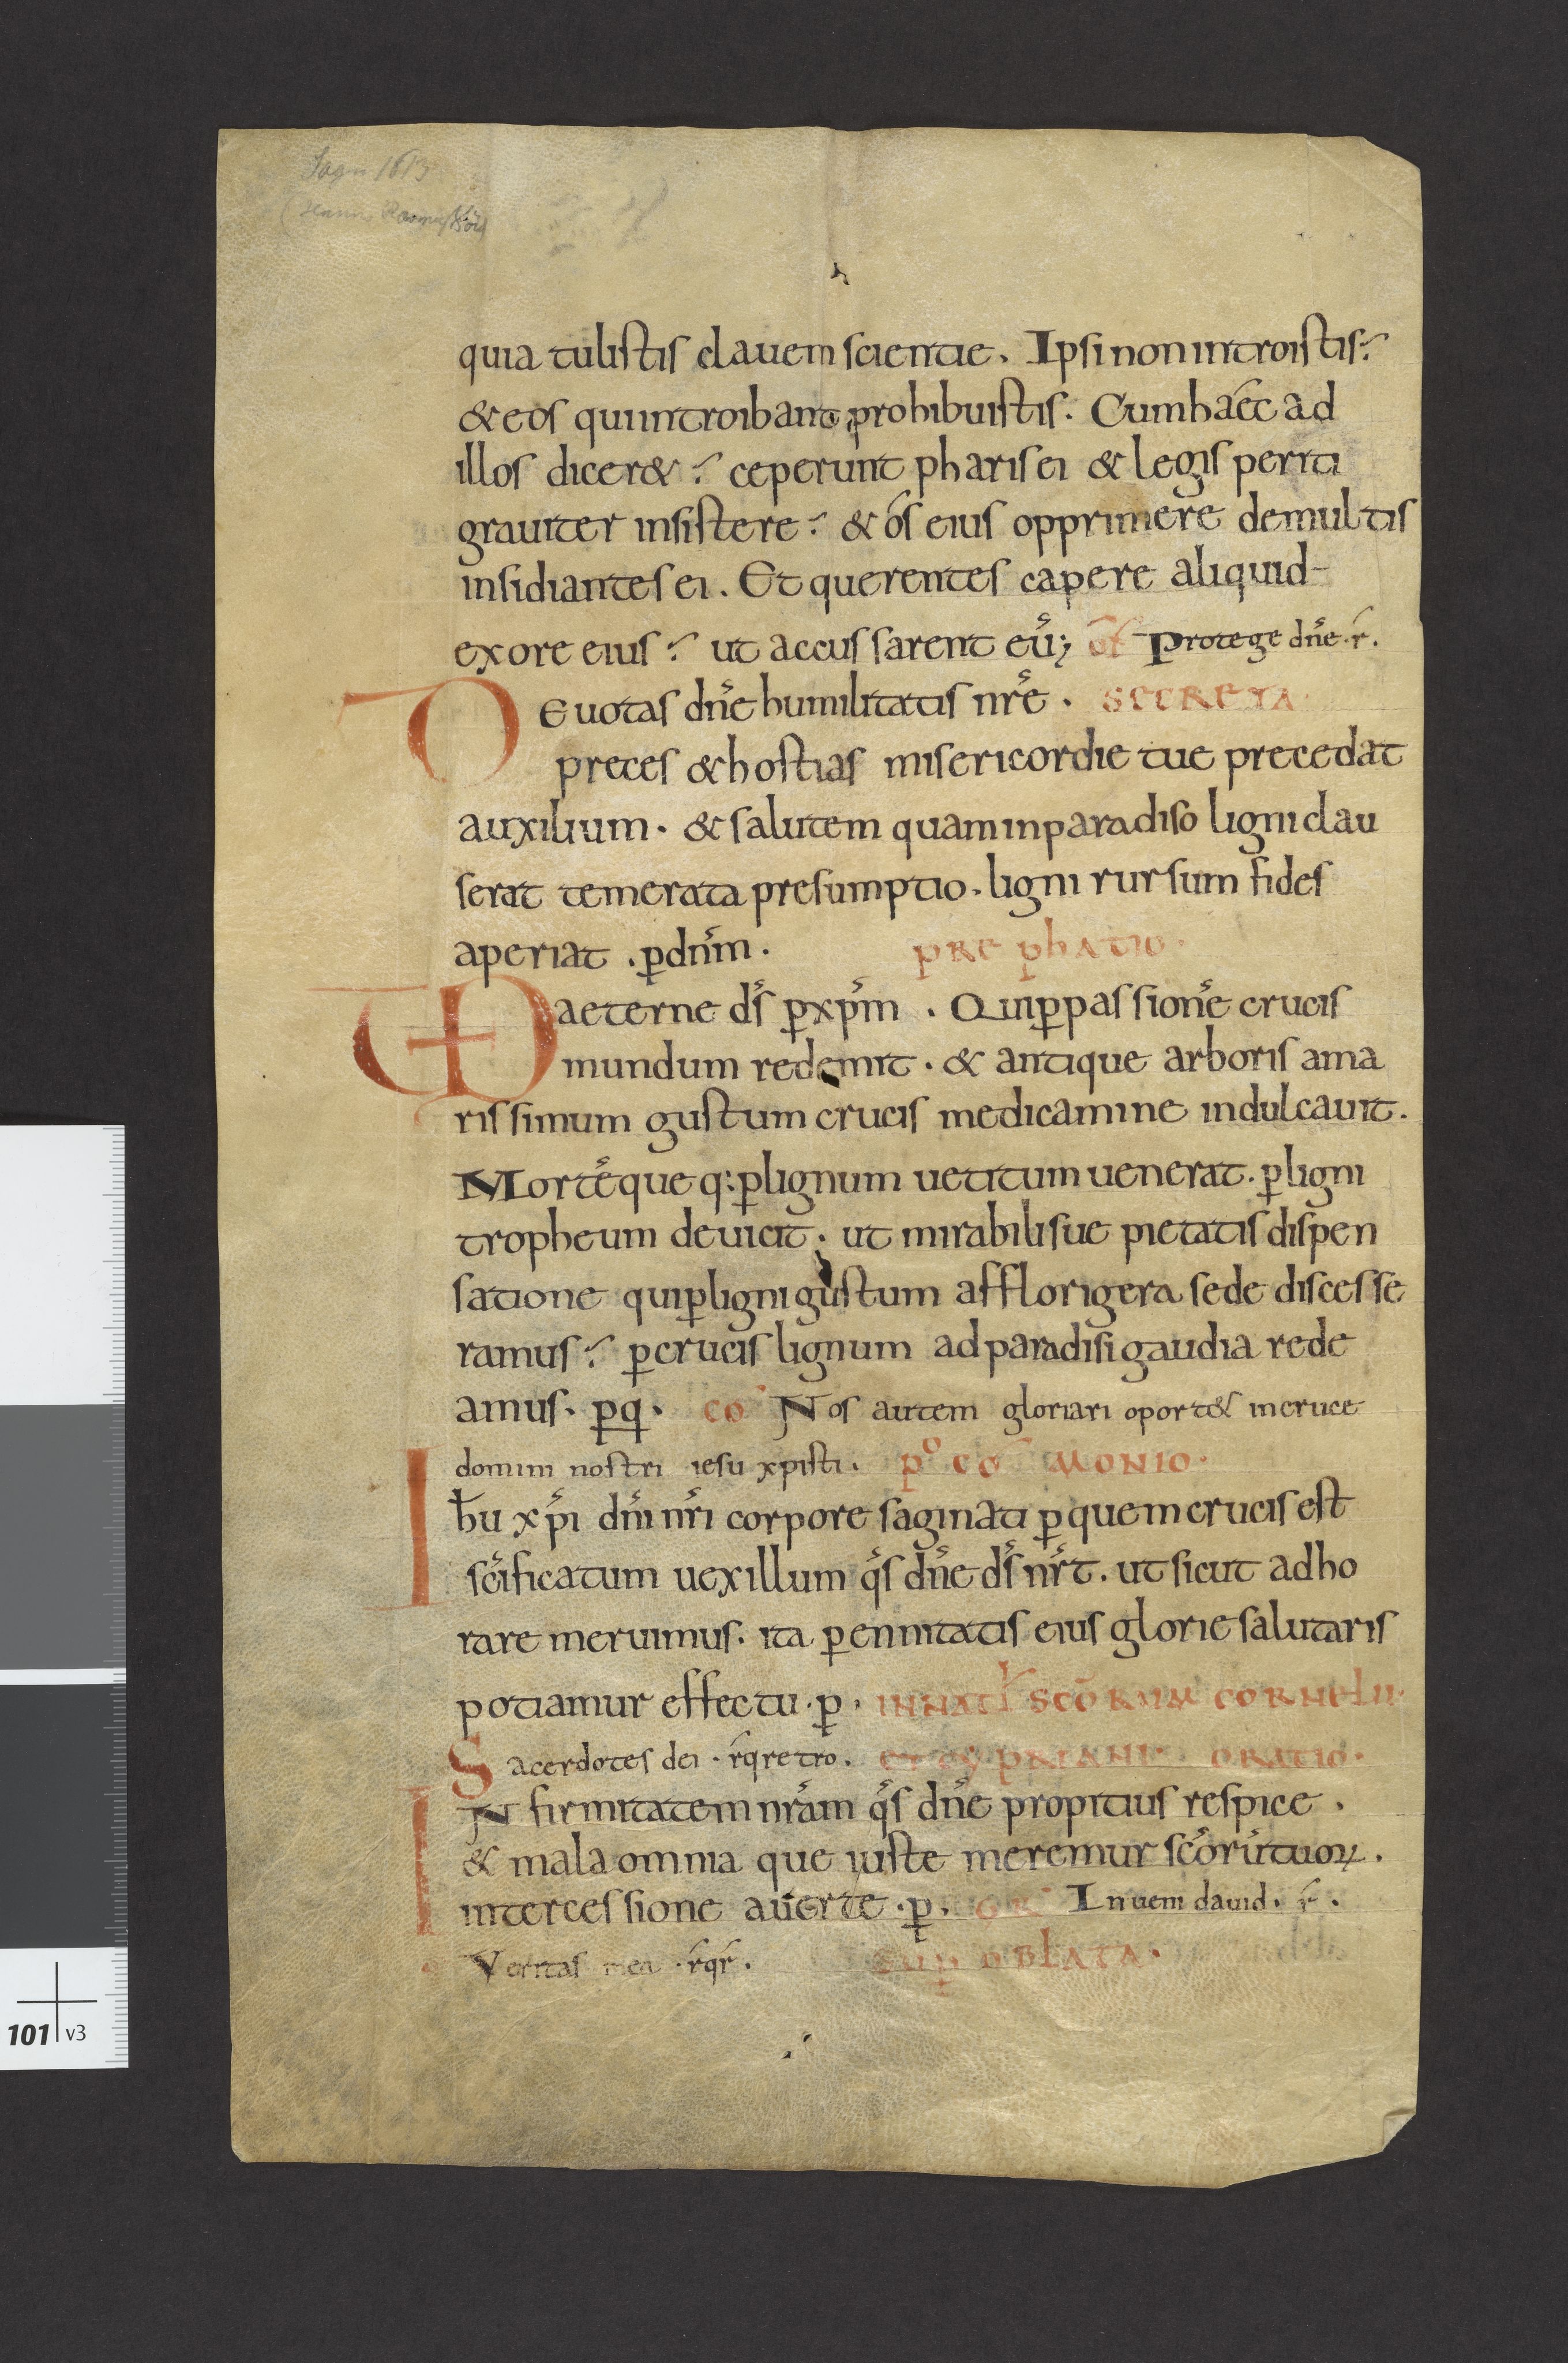 Sogn 1613
quia tulistis clauem scientie. Ipsi non introistis?
& eos qui introibant prohibuistis. Cum haec ad
illos dicer&? ceperunt pharisei & legis periti
grauiter insistere? & ós eius opprimere demultis
insidiantes ei. Et querentes capere aliquid-
ex ore eius? ut accussarent eū; of Protege dn̄e .r.
Deuotas dn̄e humilitatis nr̄e. SECRETA
preces & hostias misericordie tue precedat
auxilium. & salutem quam in paradiso ligni clau
serat temerata presumptio. ligni rursum fides
aperiat. ꝑ dn̄m. PREPHATIO.
VD aeterne ds̄ ꝑ xp̄m. Qui ꝑ passionē crucis
mundum redemit. & antique arboris ama
rissimum gustum crucis medicamine indulcauit.
Mortē que q; ꝑ lignum uetitum uenerat. ꝑ ligni
tropheum deuicit. ut mirabili sue pietatis dispen
satione qui ꝑ ligni gustum afflorigera sede discesse
ramus? ꝑ crucis lignum ad paradisi gaudia rede
amus. ꝑ q. co Nos autem gloriari oport& in cruce
domini nostri iesu xpisti. po co MONIO.
Ihu xp̄i dn̄i nr̄i corpore saginati ꝑ quem crucis est
sc̄ificatum uexillum qs̄ dn̄e ds̄ nr̄t. ut sicut adho
rare meruimus. ita ꝑennitatis eius glorie salutaris
potiamur effectu. ꝑ. IN NATL SCŌRUM CORNELII.
Sacerdotes dei. rq retro. ET CYPRIANI. ORATIO.
INfirmitatem nr̄am qs̄ dn̄e propitius respice.
& mala omnia que iuste meremur sc̄orū tuoꝝ.
intercessione auerte. ꝑ. of Inueni dauid. r.
Veritas mea . rqr. SUP OBLATA.